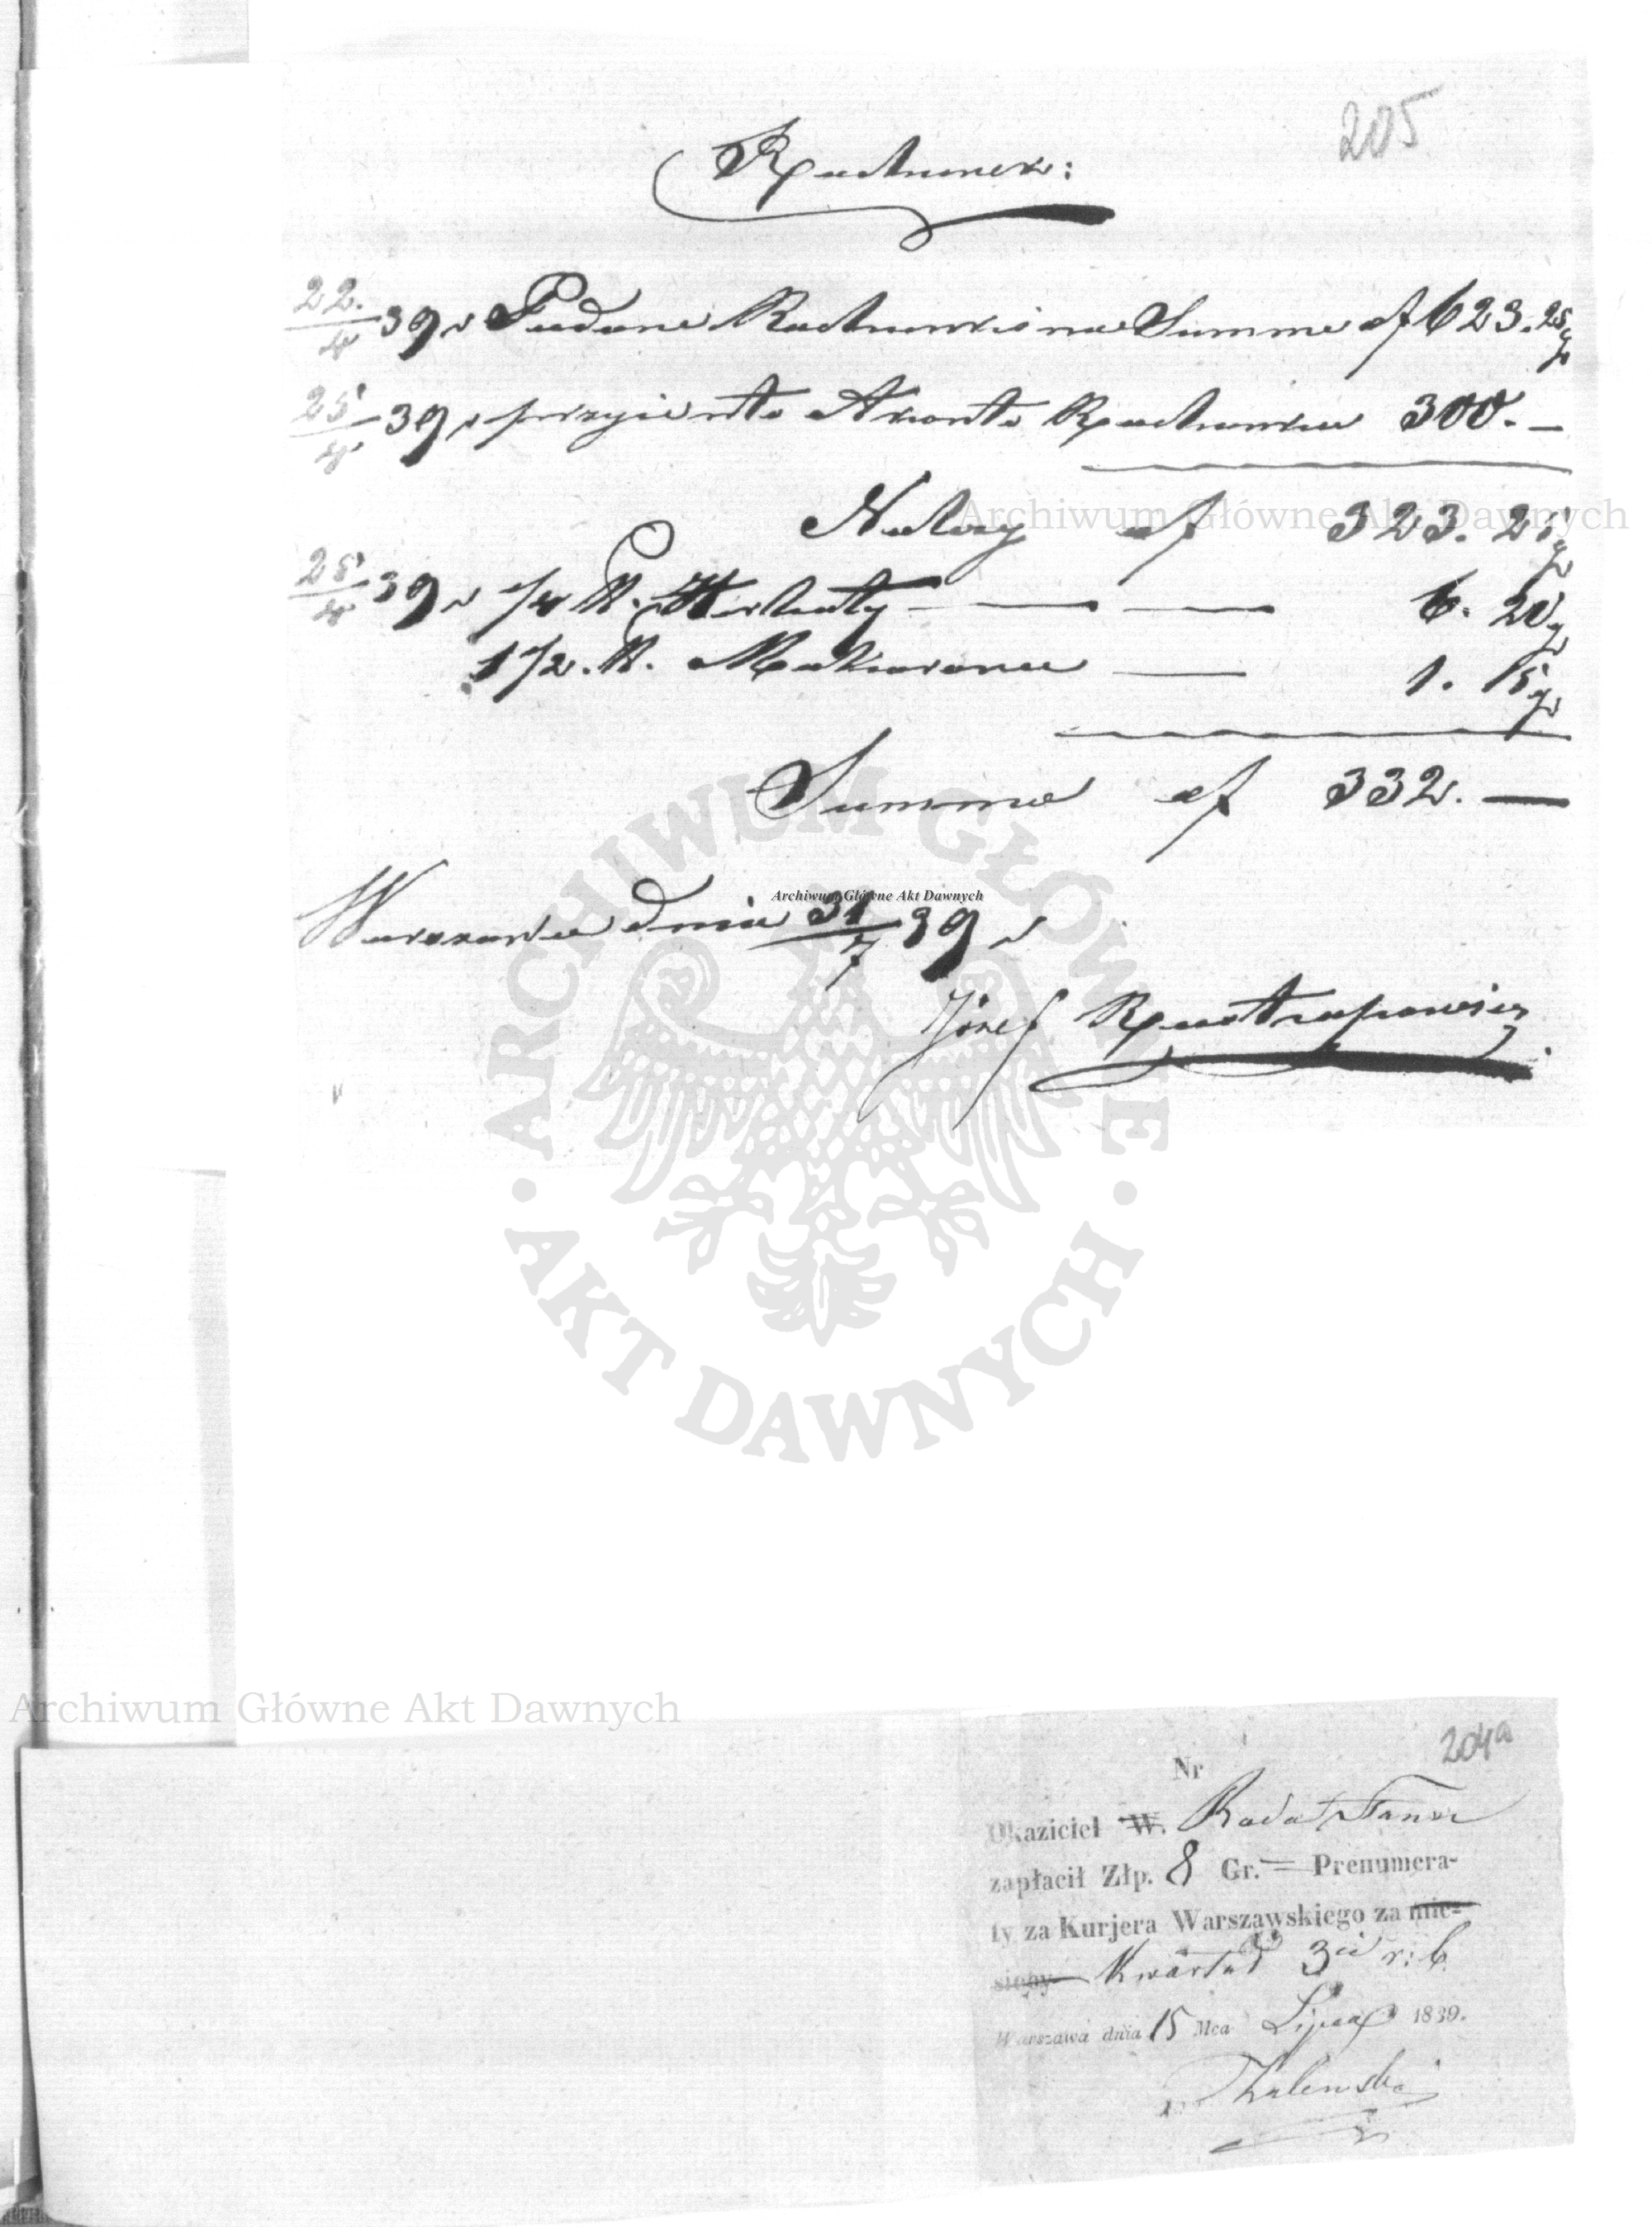 205
Rachunek:
22./4 39 r Podane Rachunki na Summe zł 623. 25 gr
25/4 39 r przyięnto Akonto Rachunku 300. —
Należy zł 323. 25 gr
25/4 39 r 1/4 tt. Herbaty — — 6. 20 gr
1 1/2. tt. Makaronu — 1. 15 gr
Summa zł 332. —
Warszawa dnia 31/7 39 r
Józef Rostrapowicz
Archiwum Główne Akt Dawnych
Archiwum Główne Akt Dawnych
ARCHIWUM GŁÓWNE AKT DAWNYCH
Archiwum Główne Akt Dawnych
204a
Nr
Okaziciel W. Rada Stanu
zapłacił Złp. 8 Gr. = Prenumera-
ty za Kurjera Warszawskiego za mie-
sięcy Kwartał 3ci r: b.
Warszawa dnia 15 Mca Lipca 1839.
Zalewski